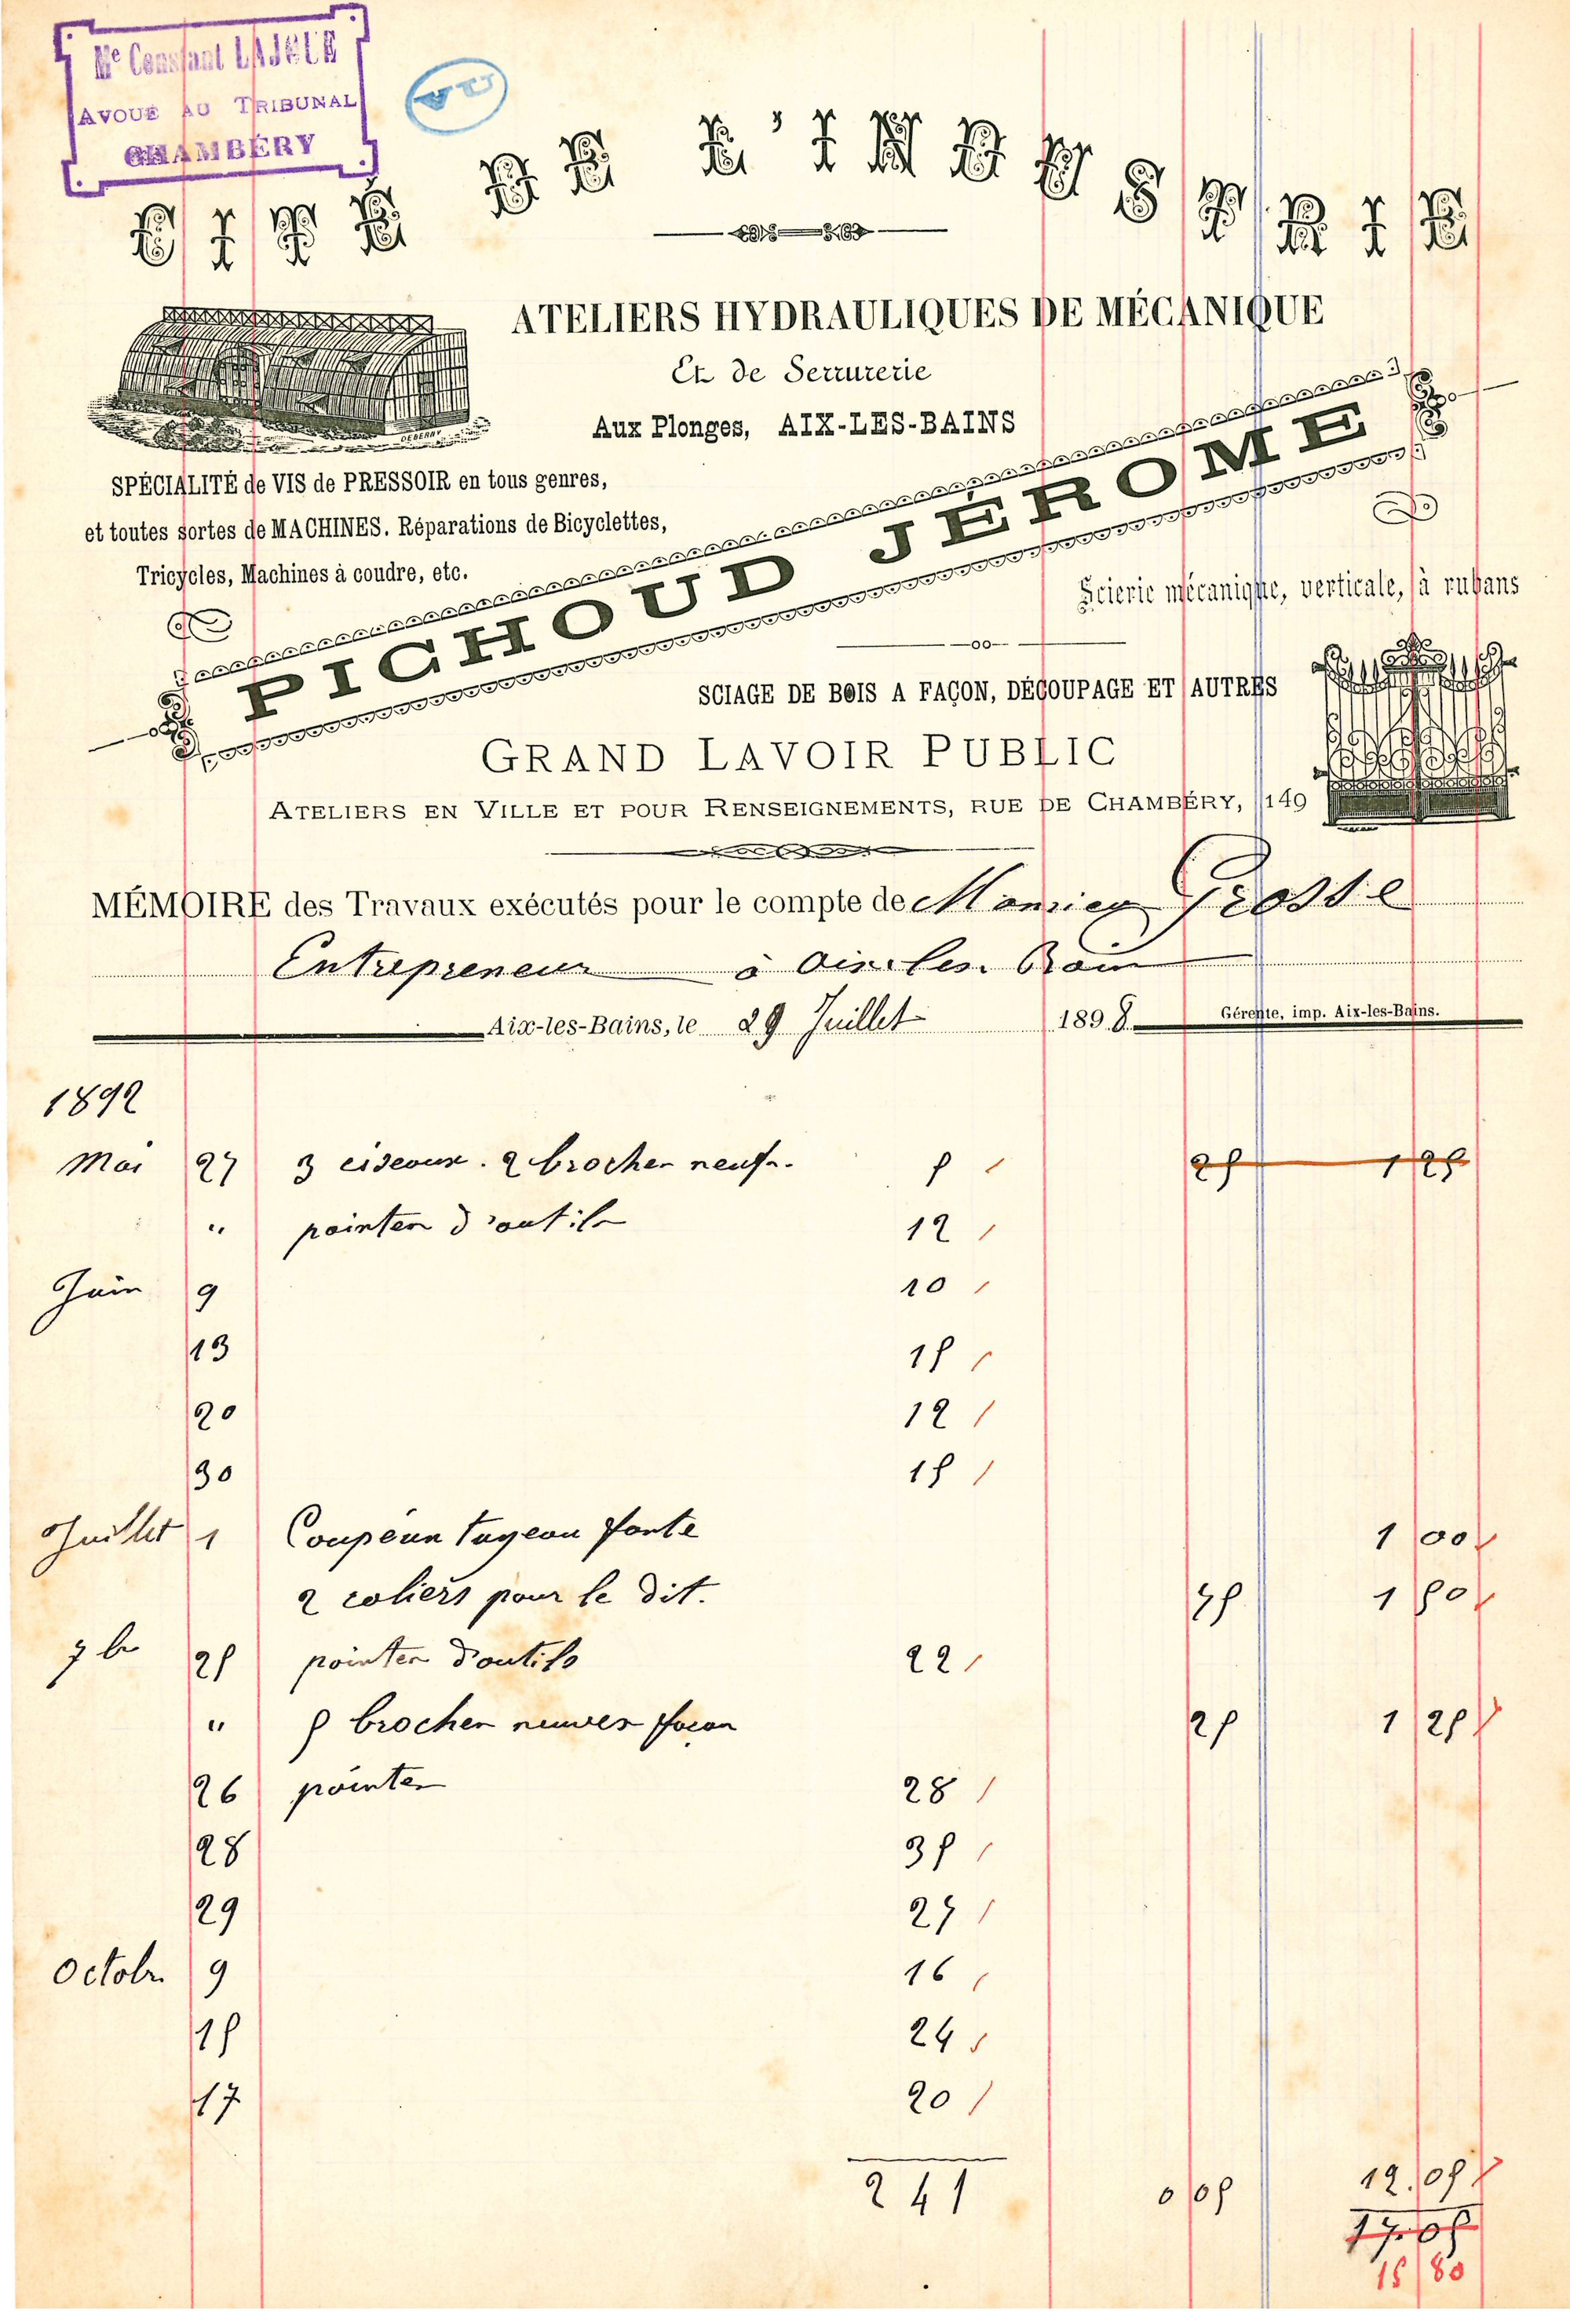 Me Constant LAJOUE
AVOUÉ AU TRIBUNAL
CHAMBÉRY
CITÉ DE L'INDUSTRIE
ATELIERS HYDRAULIQUES DE MÉCANIQUE
Et de Serrurerie
Aux Plonges, AIX-LES-BAINS
DEBERNY
SPÉCIALITÉ de VIS de PRESSOIR en tous genres,
et toutes sortes de MACHINES. Réparations de Bicyclettes,
Tricycles, Machines à coudre, etc.
PICHOUD JÉROME
Scierie mécanique, verticale, à rubans
SCIAGE DE BOIS A FAÇON, DÉCOUPAGE ET AUTRES
GRAND LAVOIR PUBLIC
ATELIERS EN VILLE ET POUR RENSEIGNEMENTS, RUE DE CHAMBÉRY, 149
MÉMOIRE des Travaux exécutés pour le compte de Grosse
Entrepreneur à Aix les Bain
Aix-les-Bains, le 29 Juillet 1898
Gérente, imp. Aix-les-Bains.
1892
Mai 27 3 ciseaux. 2 broches neufs. 5 25 1 25
" pointes d'outils 12
Juin 9 10
13 15
20 12
30 15
Juillet 1 Coupé un tuyeau fonte 1 00
2 coliers pour le dit. 75 1 50
7bre 25 pointes d'outils 22
" 5 broches neuves façon 25 1 25
26 pointes 28
28 35
29 27
Octobr 9 16
15 24
17 20
241 0 05 12.05
17.05
15 80